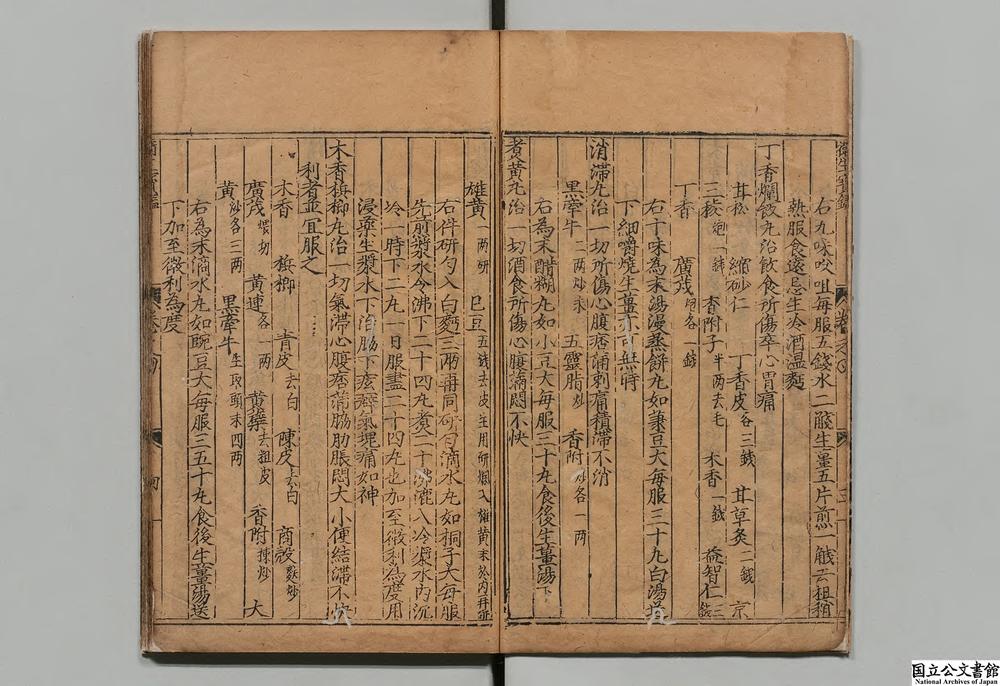 衛生寶鑑
右九味㕮咀每服五錢水二盞生薑五片煎一盞去柤稍
熱服食遠忌生冷酒溫麪
丁香爛飯丸治飲食所傷卒心胃痛
甘松 縮砂仁 丁香皮各三錢 甘草炙二錢 京
三稜炮一錢 香附子半兩去毛 木香一錢 益智仁三錢
丁香 廣茂炮各一錢
右十味為末湯浸蒸餅丸如菉豆大每服三十丸白湯送
下細嚼燒生薑亦可無時
消滯丸治一切所傷心腹痞滿刺痛積滯不消
黑牽牛二兩炒末 五靈脂炒 香附炒各一兩
右為末醋糊丸如小豆大每服三十丸食後生薑湯下
煮黃丸治一切酒食所傷心腹滿悶不快
雄黃一兩研 巴豆五錢去皮生用研爛入雄黃末於內再研
右件研勻入白麪二兩再同研勻滴水丸如桐子大每服
先煎漿水令沸下二十四丸煮二十沸漉入冷漿水內沉
冷一時下二丸一日服盡二十四丸也加至微利為度用
浸藥生漿水下治脇下痃癖氣塊痛如神
木香檳榔丸治一切氣滯心腹痞滿脇肋脹悶大小便結滯不快
利者並宜服之
木香 檳榔 青皮去白 陳皮去白 商殼麩炒
廣茂煨切 黃連各一兩 黃蘗去粗皮 香附揀炒 大
黃炒各三兩 黑牽牛生取頭末四兩
右為末滴水丸如豌豆大每服三五十丸食後生薑湯送
下加至微利為度
国立公文書館
National Archives of Japan